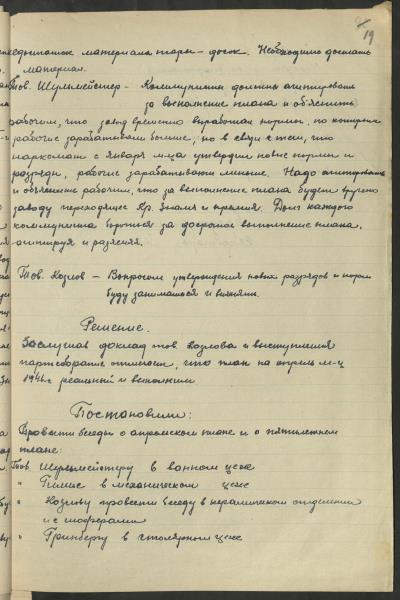 19
недостаток материала тары – досок. Необходимо достать
материал.
Тов. Шульмейстер – Коммунисты должны агитировать
за выполнение плана и объяснить
рабочим, что завод временно выработал нормы, по которым
рабочие зарабатывали больше, но в связи с тем, что
наркомат с января м-ца утвердил новые нормы и
разряды, рабочие зарабатывают меньше. Надо агитировать
и объяснить рабочим, что за выполнение плана будет вручено
заводу переходящее Кр. Знамя и премия. Долг каждого
коммуниста бороться за досрочное выполнение плана,
агитируя и разъясняя.
Тов. Козлов – Вопросом утверждения новых разрядов и норм
буду заниматься и выяснять.
Решение.
Заслушав доклад тов Козлова и выступления
партсобрание отмечает, что план на апрель м-ц
1946 г реальный и выполним
Постановили:
Провести беседы о апрельском плане и о пятилетнем
плане:
Тов Шульмейстеру в ванном цехе
" в механическом цехе
" Козлову провести беседу в керамическом отделении
и с шоферами
" Гринбергу в столярном цехе